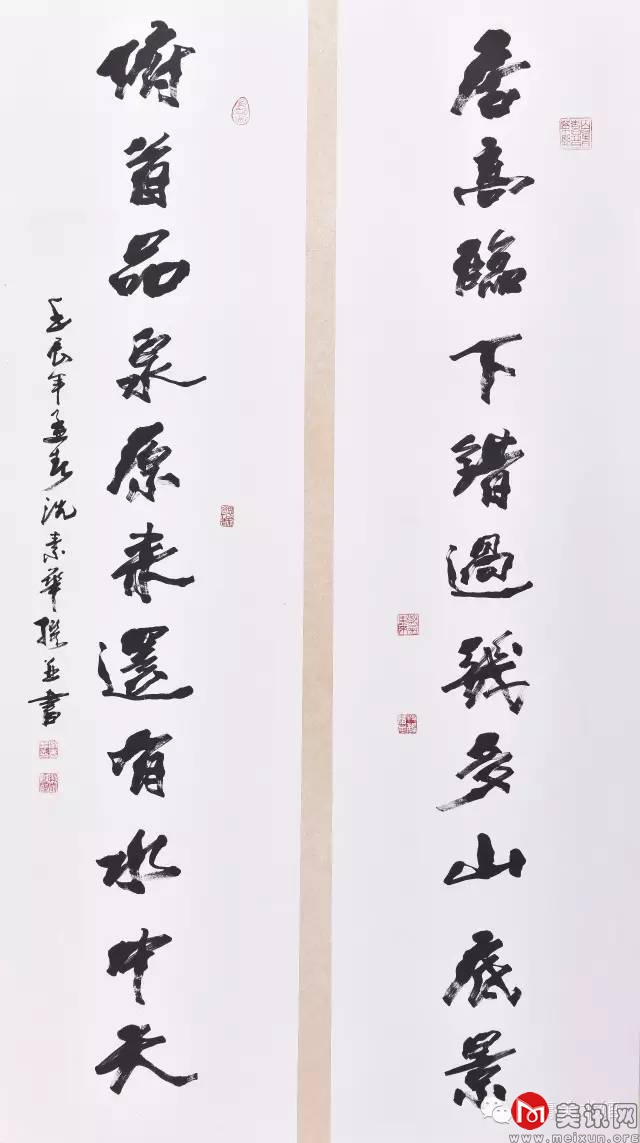 居高臨下錯過幾多山底景
俯首品泉原來還有水中天
壬辰年孟春沈素華撰並書
美讯网
www.meixun.org